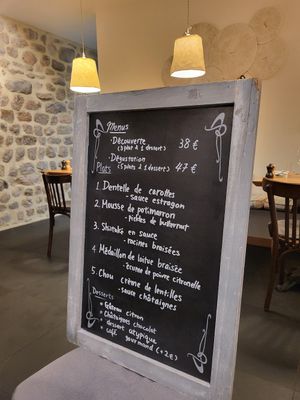 Menus
• Découverte 38 €
(3 plats & 1 dessert)
• Dégustation 47 €
Plats (5 plats & 1 dessert)
1. Dentelle de carottes
- sauce estragon
2. Mousse de potimarron
- pickles de butternut
3. Shiitakés en sauce
- racines braisées
4. Médaillon de laitue braisée
- écume de poivre citronelle
5. Chou crème de lentilles
- sauce châtaignes
Desserts
• citron
• Châtaignes chocolat
• dessert atypique
• café gourmand (+2€)